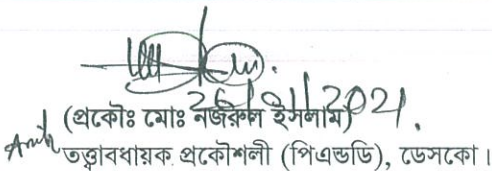 26/01/2021.
(প্রকৌঃ মোঃ নজরুল ইসলাম)
তত্ত্বাবধায়ক প্রকৌশলী (পিএন্ডডি), ডেসকো।